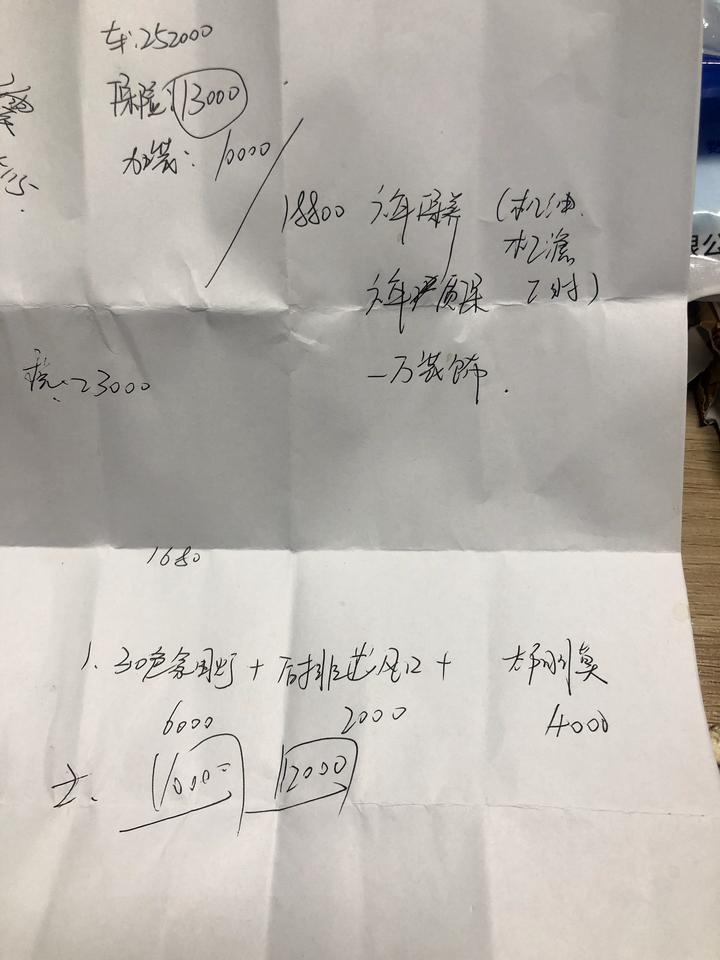 车:252000
保险:13000
加装:10000
18800 六年保养 (机油.
机滤
六年 质保 工时)
一万装饰.
税:23000
1680
1. 30色氛围灯 + 后排出风口 +
6000 2000 4000
10000 12000
限公